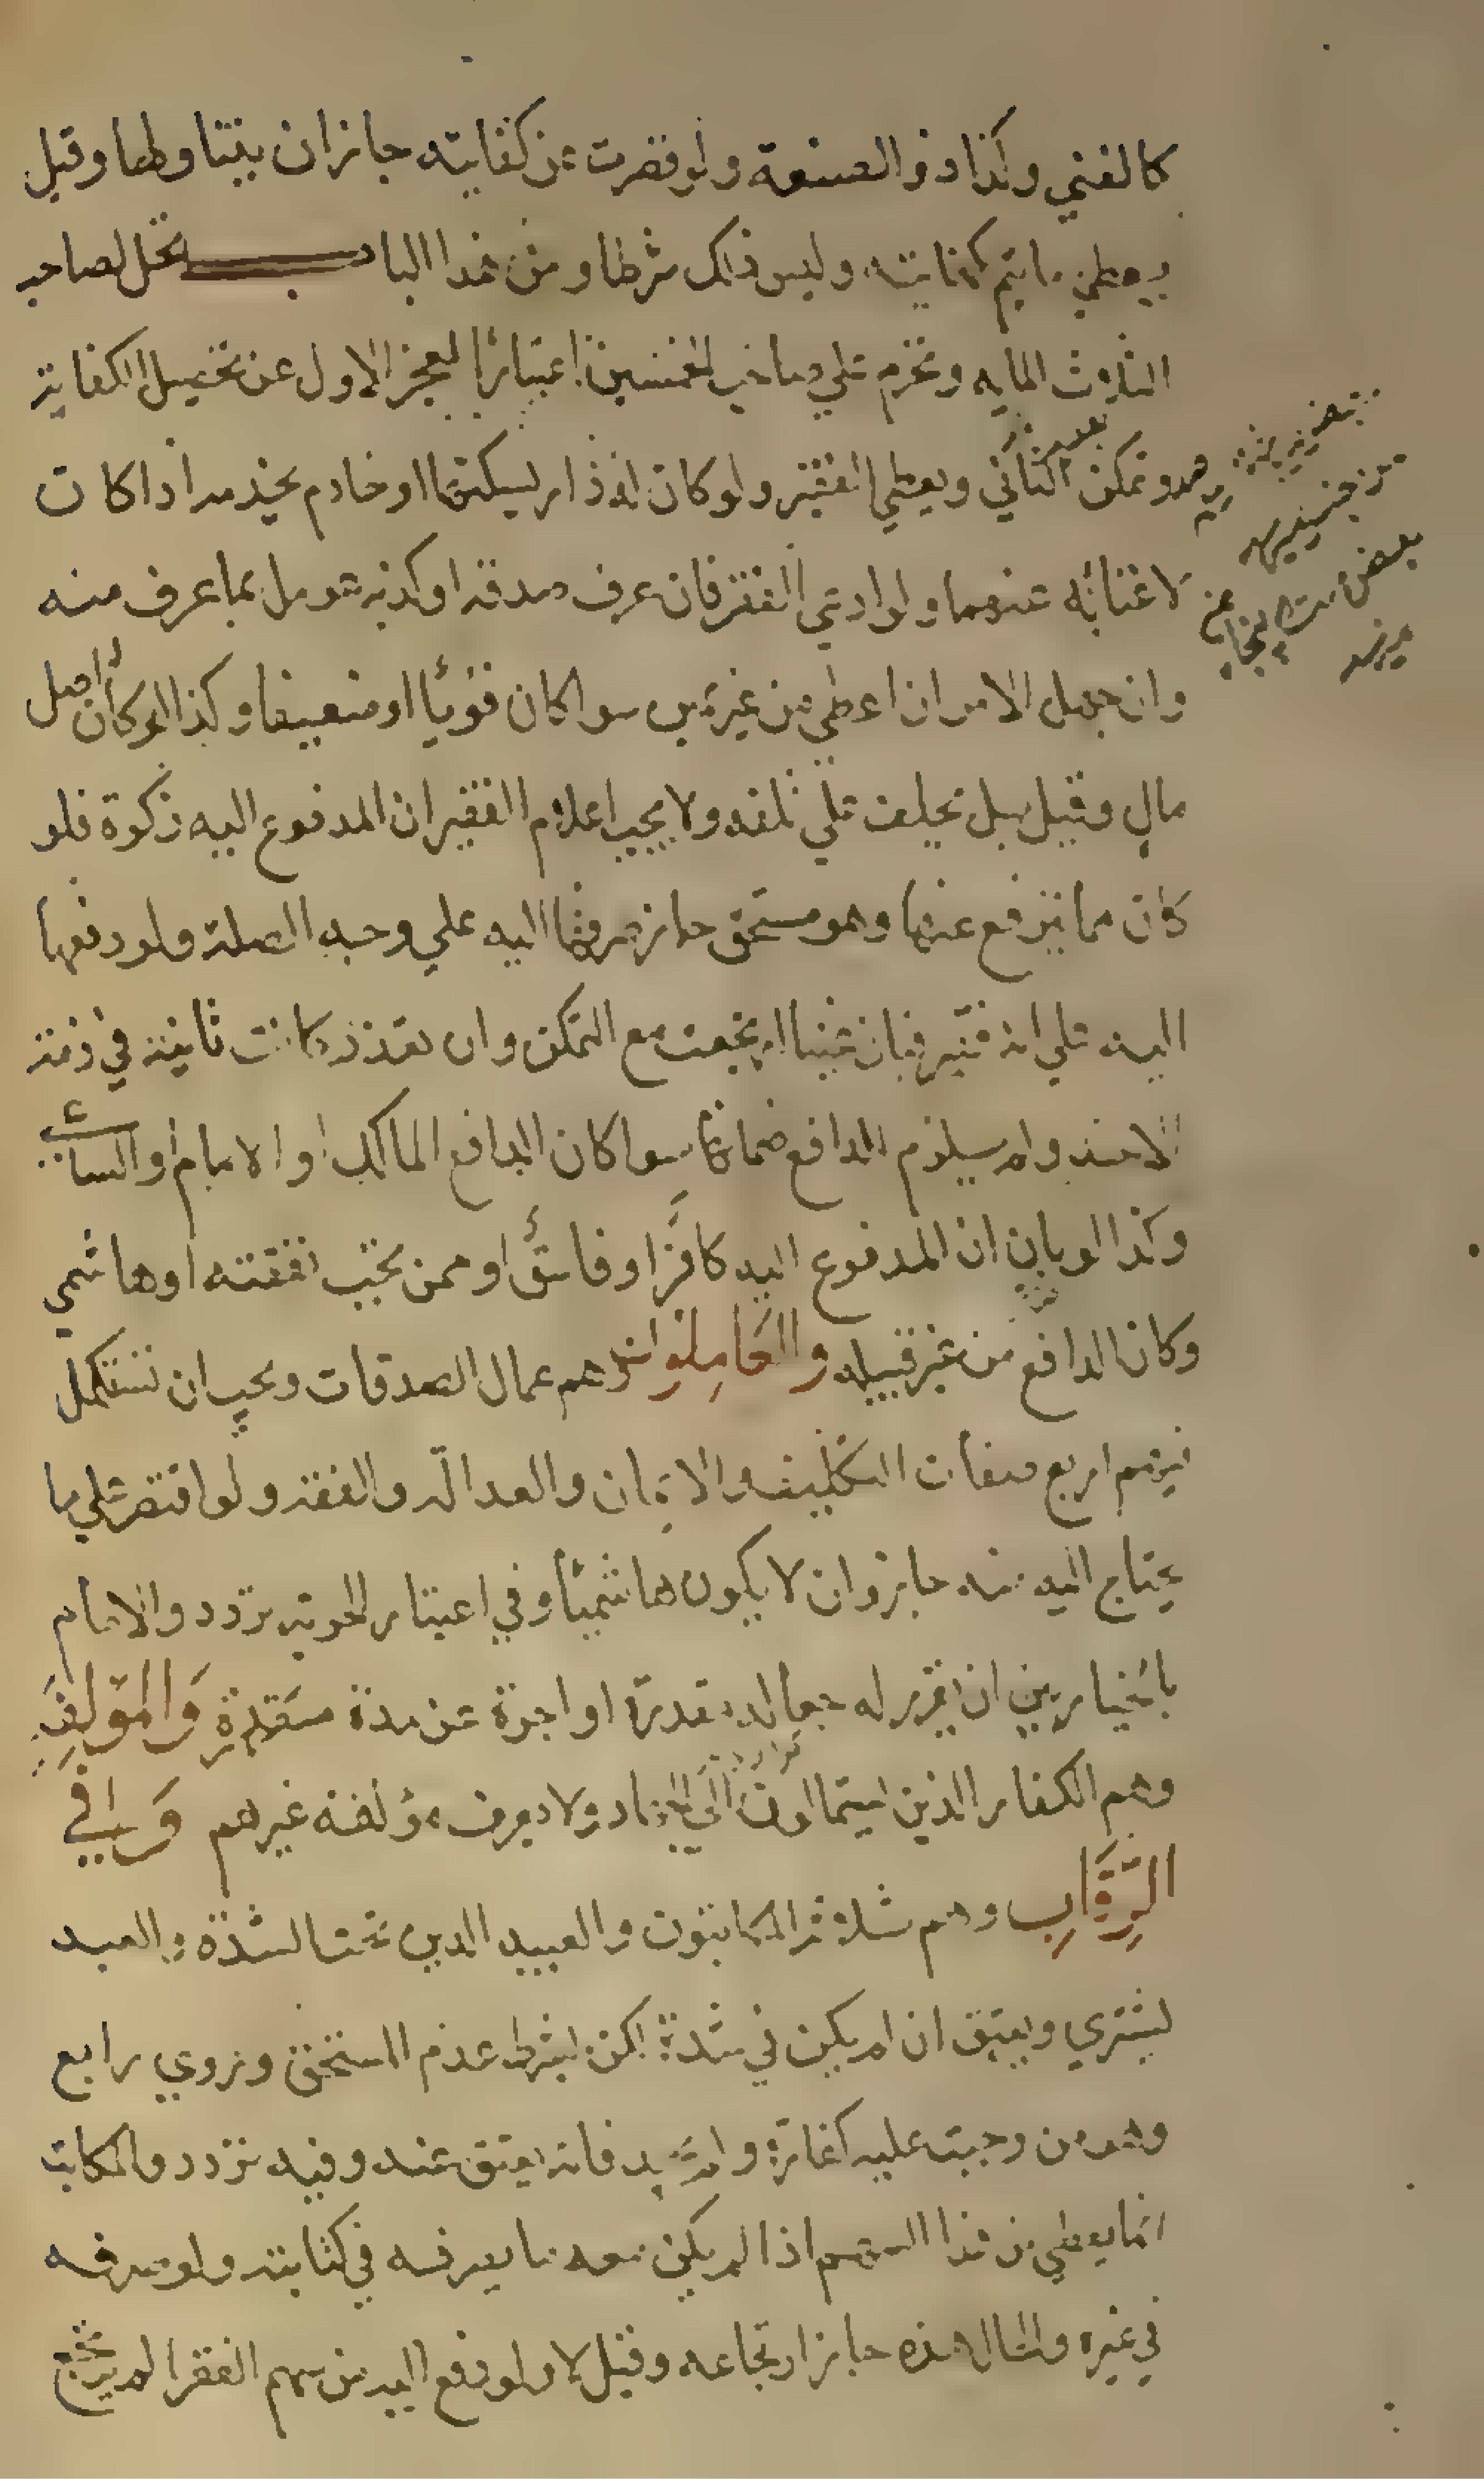 كالغني وكذا ذو الصنعة ولو قصرت عن كفايته جاز ان يتناولها وقيل
يعطي ما يتم كفايته وليس ذلك شرطا ومن هذا الباب تحل لصاحب
الثلاث المايه وتحرم علي صاحب الخمسين اعتبارا لعجز الاول عن تحصيل الكفاية
وتمكن الثاني ويعطي الفقير ولو كان له دار يسكنها او خادم يخدمه اذا كان
لا غنا به عنهما ولو ادعي الفقر فان عرف صدقه او كذبه عومل بما عرف منه
وان جهل الامران اعطي من غير يمين سوا كان قويا او ضعيفا وكذا لو كان له اصل
مال وقيل بل يحلف علي تلفه ولا يجب اعلام الفقير ان المدفوع اليه زكوة فلو
كان مما يترفع عنها وهو مستحق جاز صرفها اليه علي وجه الصلة ولو دفعها
اليه علي انه فقير فبان غنيا ارتجعت مع التمكن وان تعذر كانت ثابتة في ذمة
الاخذ ولم يلزم الدافع ضمانها سوا كان الدافع المالك او الامام او الساعي
وكذا لو بان ان المدفوع اليه كافرا او فاسق او ممن تجب نفقته او هاشمي
وكان الدافع من غير قبيله والعاملون وهم عمال الصدقات ويجب ان تستكمل
فيهم اربع صفات التكليف والايمان والعدالة والفقه ولو اقتصر علي ما
يحتاج اليه منه جاز وان لا يكون هاشميا وفي اعتبار الحرية تردد والامام
بالخيار بين ان يقرر له جعالة مقدرة او اجرة عن مدة مقدرة والمولفة
وهم الكفار الذين يستمالون الي الجهاد ولا يعرف مؤلفه غيرهم وفي
الرقاب وهم ثلاثة المكاتبون والعبيد الذين تحت الشدة والعبد
يشتري ويعتق ان لم يكن في شدة لكن بشرط عدم المستحق وروي رابع
وهو من وجبت عليه كفارة ولم يجد فانه يعتق عنه وفيه تردد والمكاتب
انما يعطي من هذا السهم اذا لم يكن معه ما يصرفه في كتابته ولو صرفه
في غيره والحال هذه جاز ارتجاعه وقيل لا ولو دفع اليه من سهم الفقرا لم يرتجع